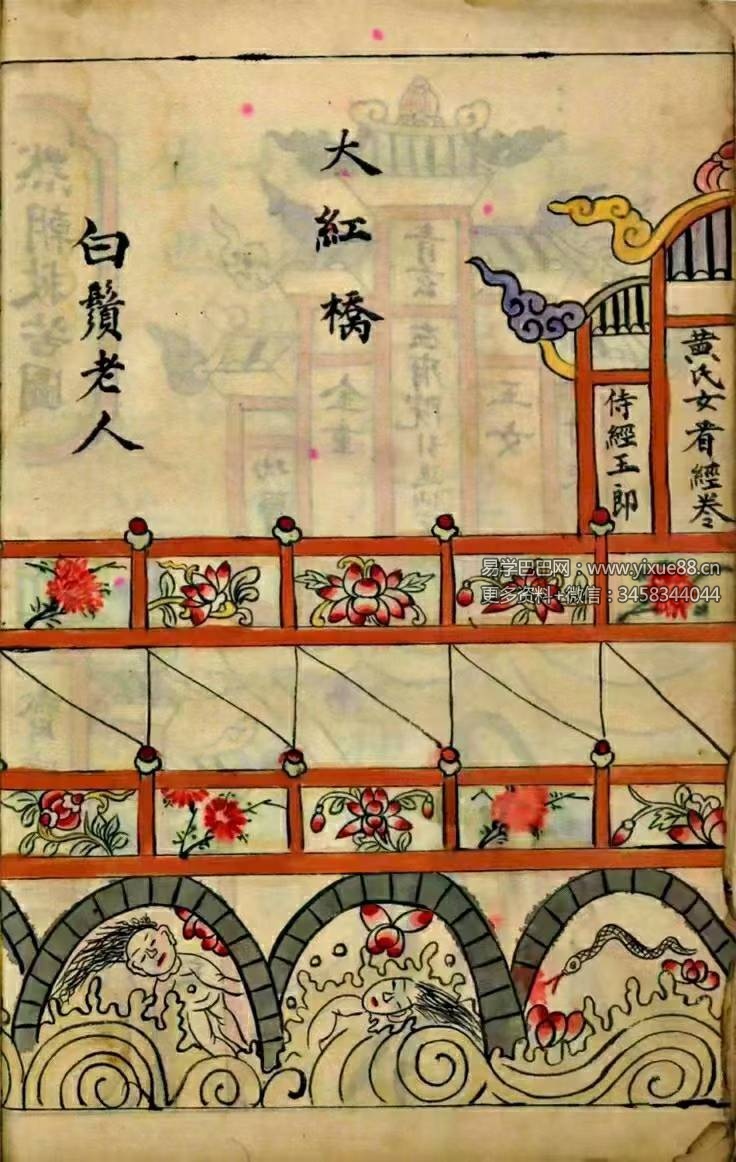 黄氏女看經卷
侍經玉郎
大紅橋
白鬚老人
易学巴巴网：www.yixue88.cn
更多资料+微信：3458344044